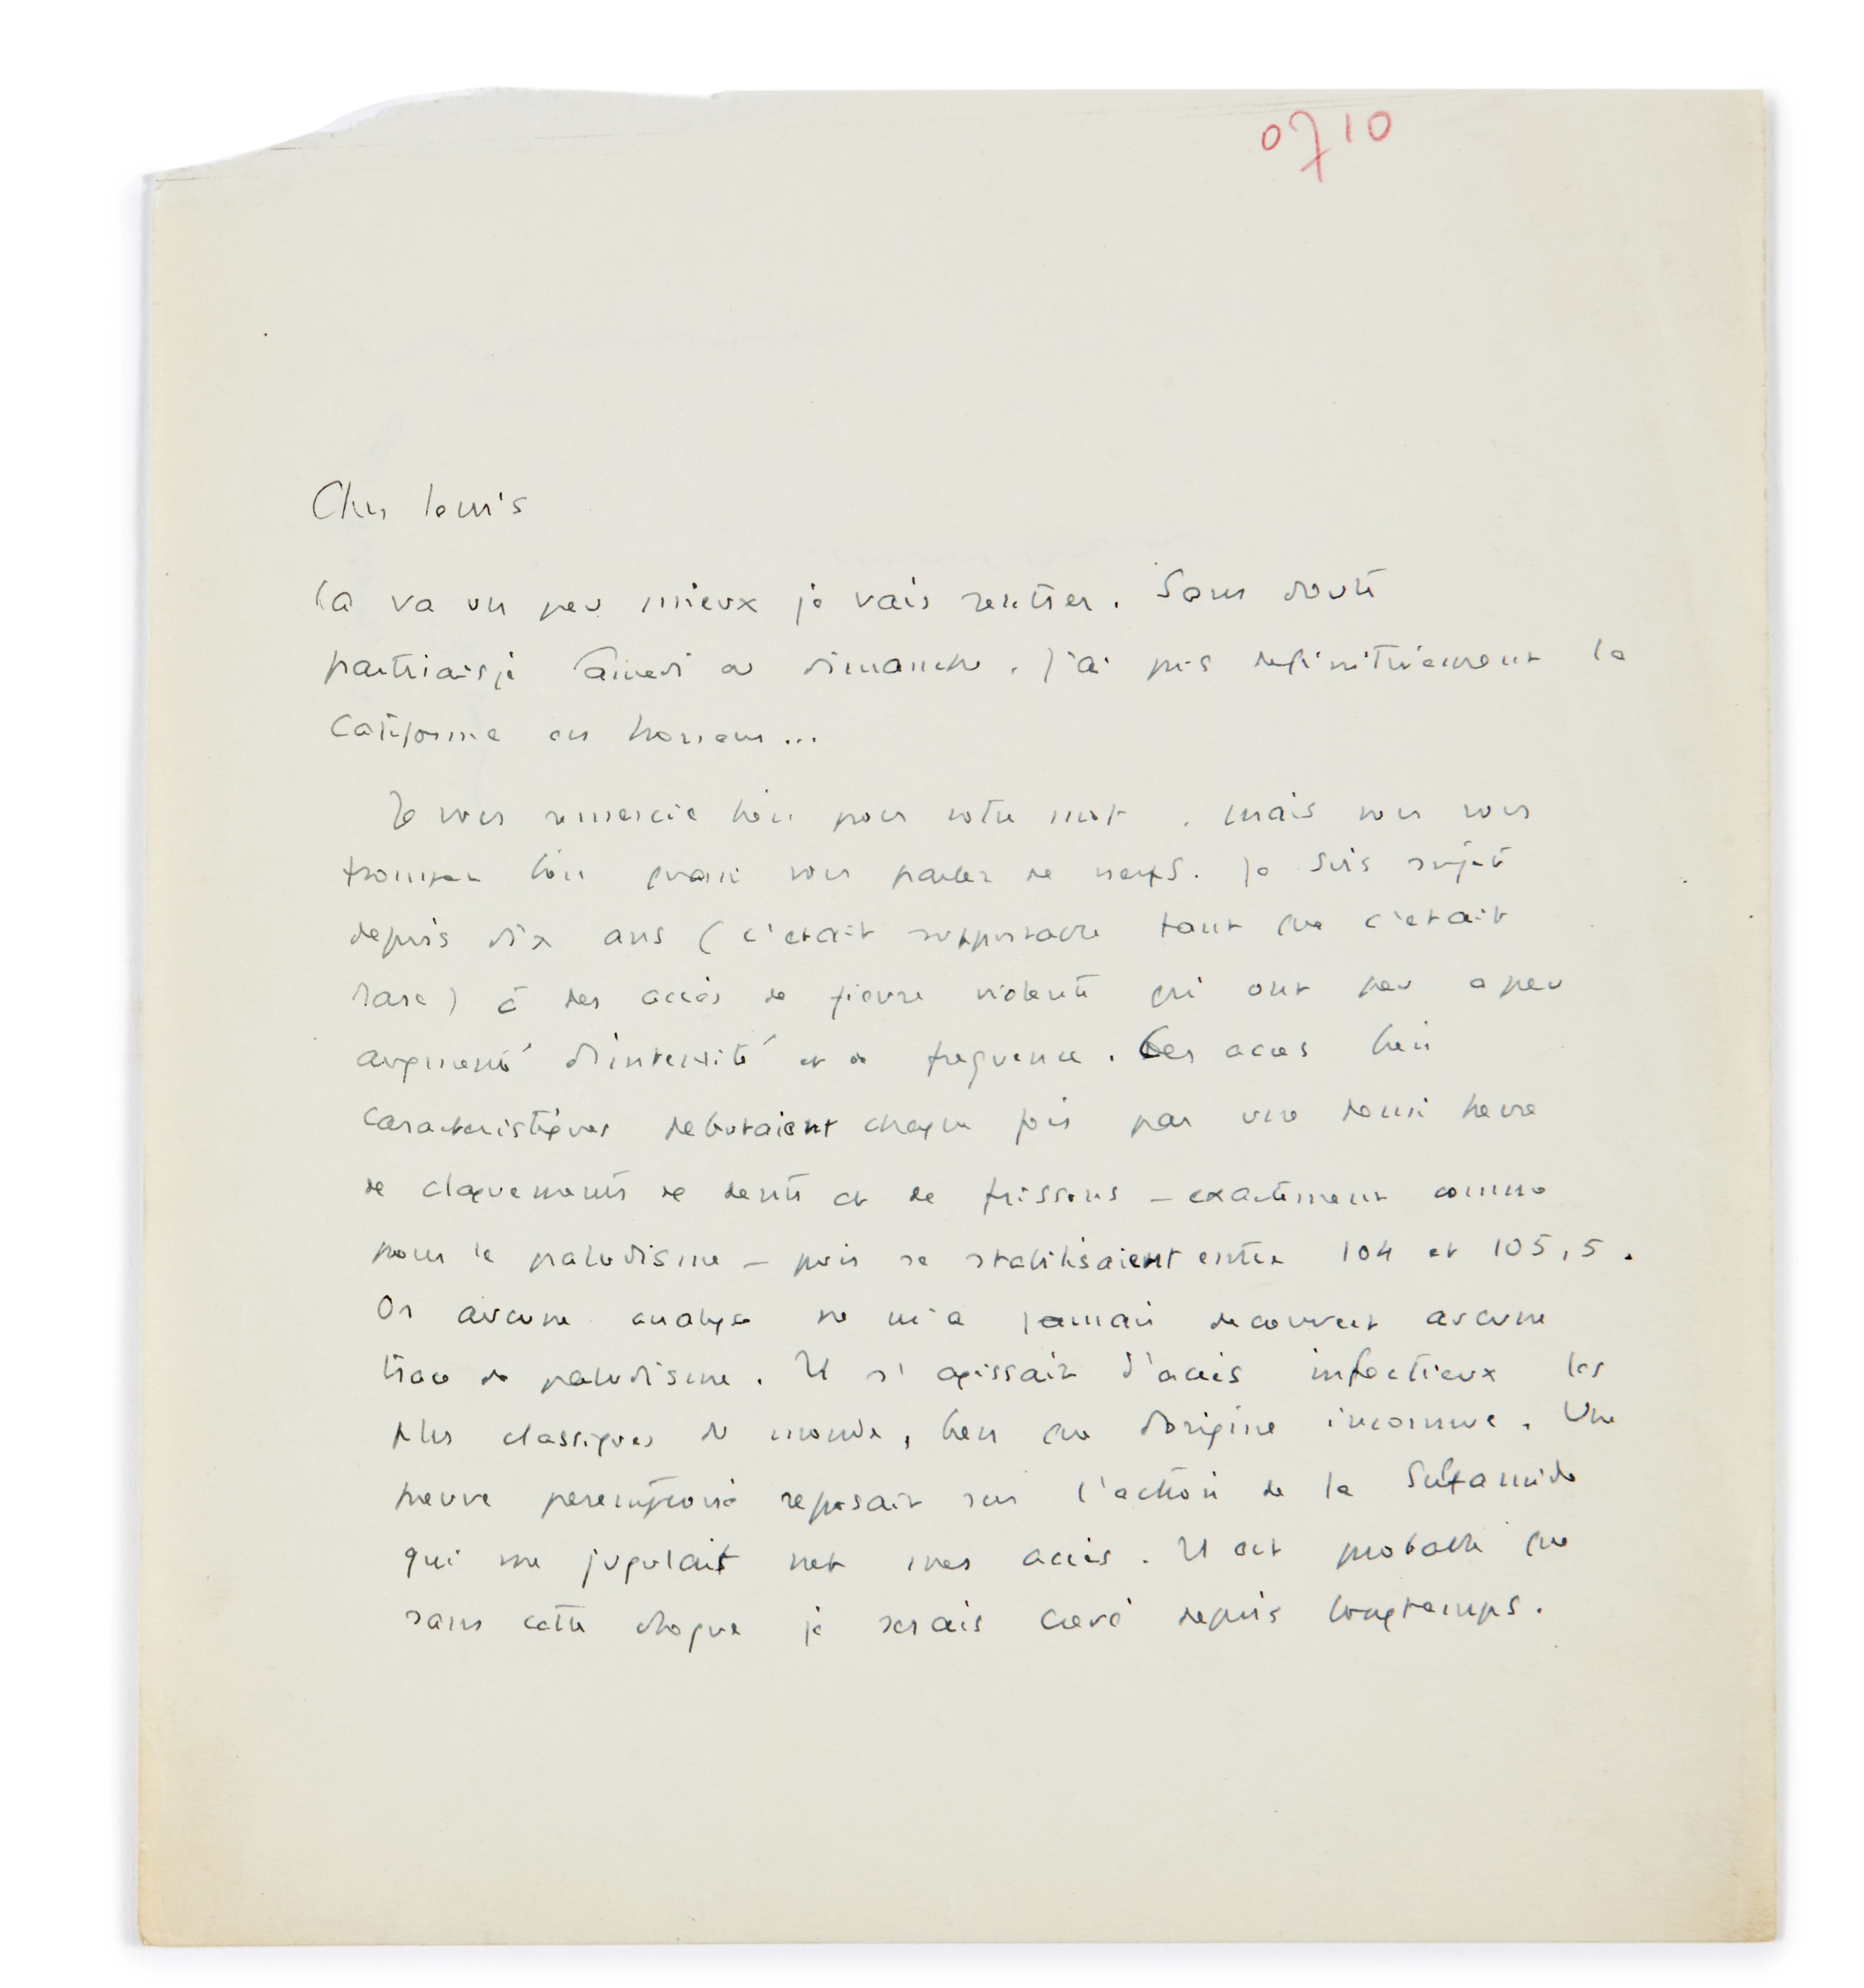 Cher Louis
Ca va un peu mieux je vais rentrer. Sans doute
partirais je samedi ou dimanche. J'ai pris definitivement la
Californie en horreur...
Je vous remercie bien pour votre mot. Mais vous vous
trompez bien quand vous parlez de nerfs. Je suis sujet
depuis dix ans (c'etait supportable tant que c'etait
rare) à des accès de fievre violents qui ont peu a peu
augmenté d'intensité et de frequence. Ces acces bien
caracteristiques debutaient chaque fois par une demi heure
de claquements de dents et de frissons — exactement comme
pour le paludisme — puis se stabilisaient entre 104 et 105,5.
Or aucune analyse ne m'a jamais decouvert aucune
trace de paludisme. Il s'agissait d'accès infectieux les
plus classiques du monde, bien que d'origine inconnue. Une
preuve peremptoire reposait sur l'action de la Sulfamide
qui me jugulait net mes accès. Il est probable que
sans cette drogue je serais crevé depuis longtemps.